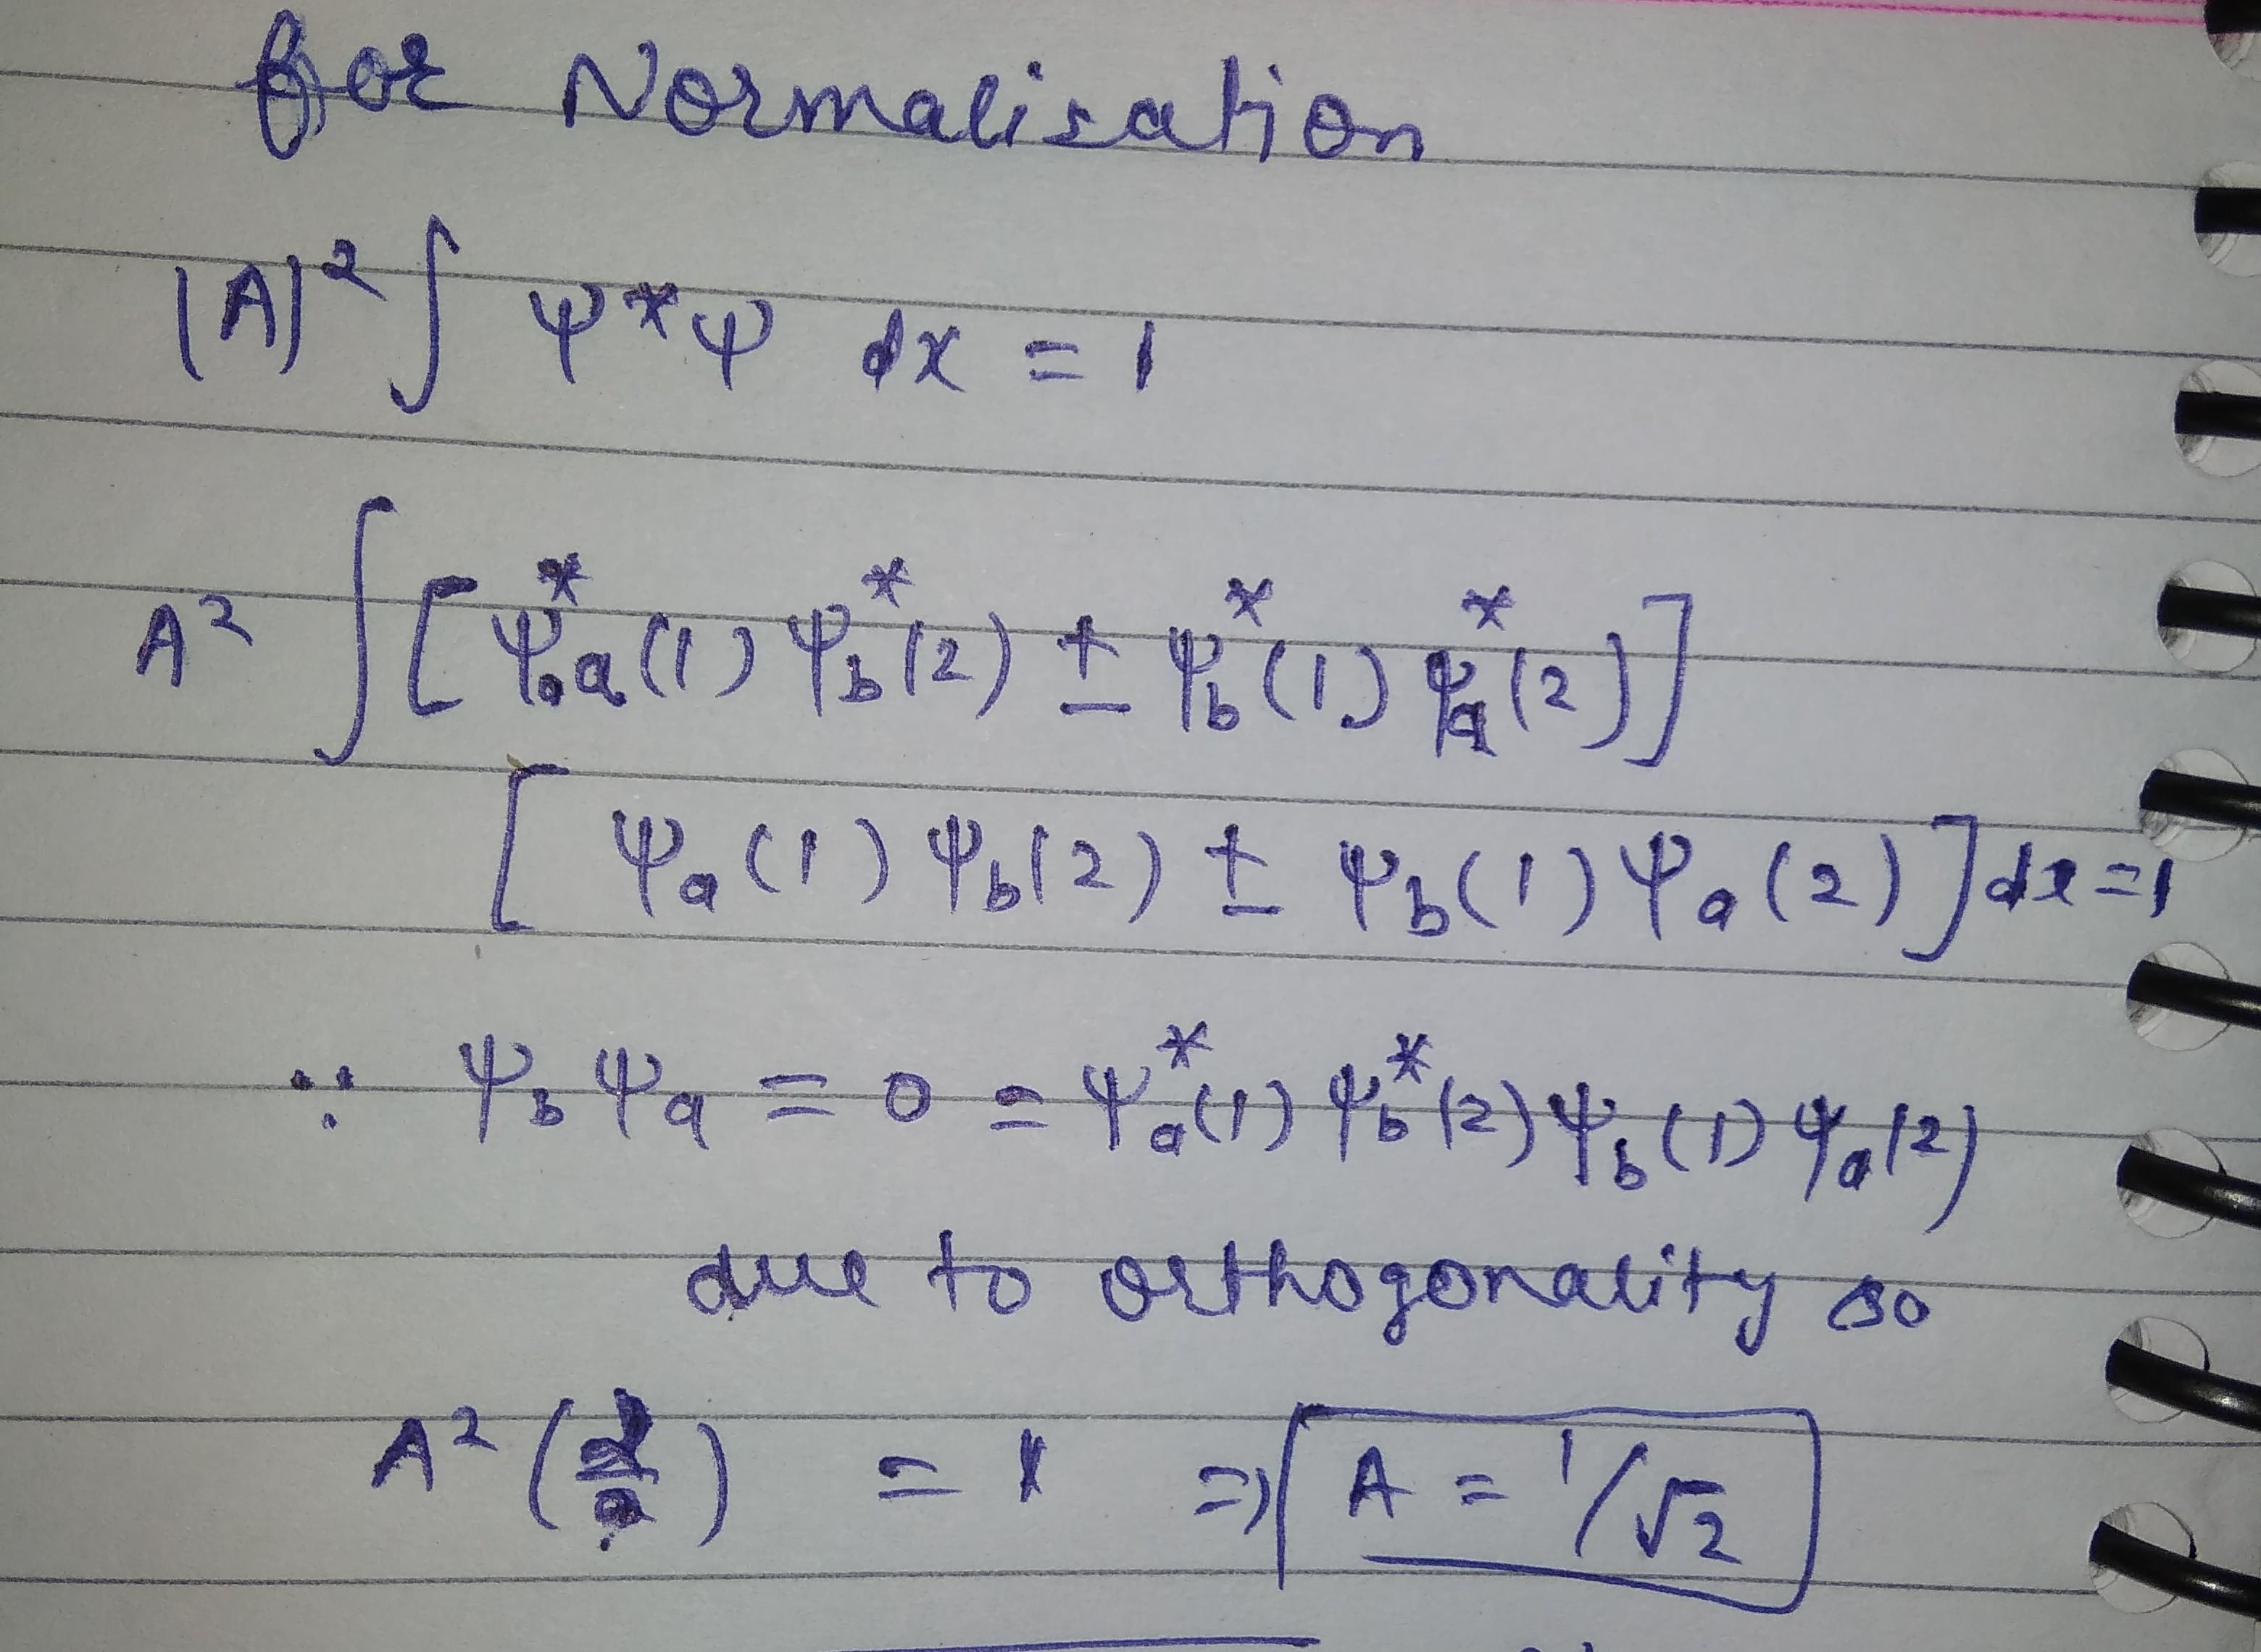 for Normalisation
|A|² ∫ ψ*ψ dx = 1
A² ∫ [ψ*a(1) ψ*b(2) ± ψ*b(1) ψ*a(2)]
[ψa(1) ψb(2) ± ψb(1) ψa(2)] dx = 1
∵ ψb ψa = 0 = ψ*a(1) ψ*b(2) ψb(1) ψa(2)
due to orthogonality so
A² ( ) = 1 ⇒ A = 1/√2